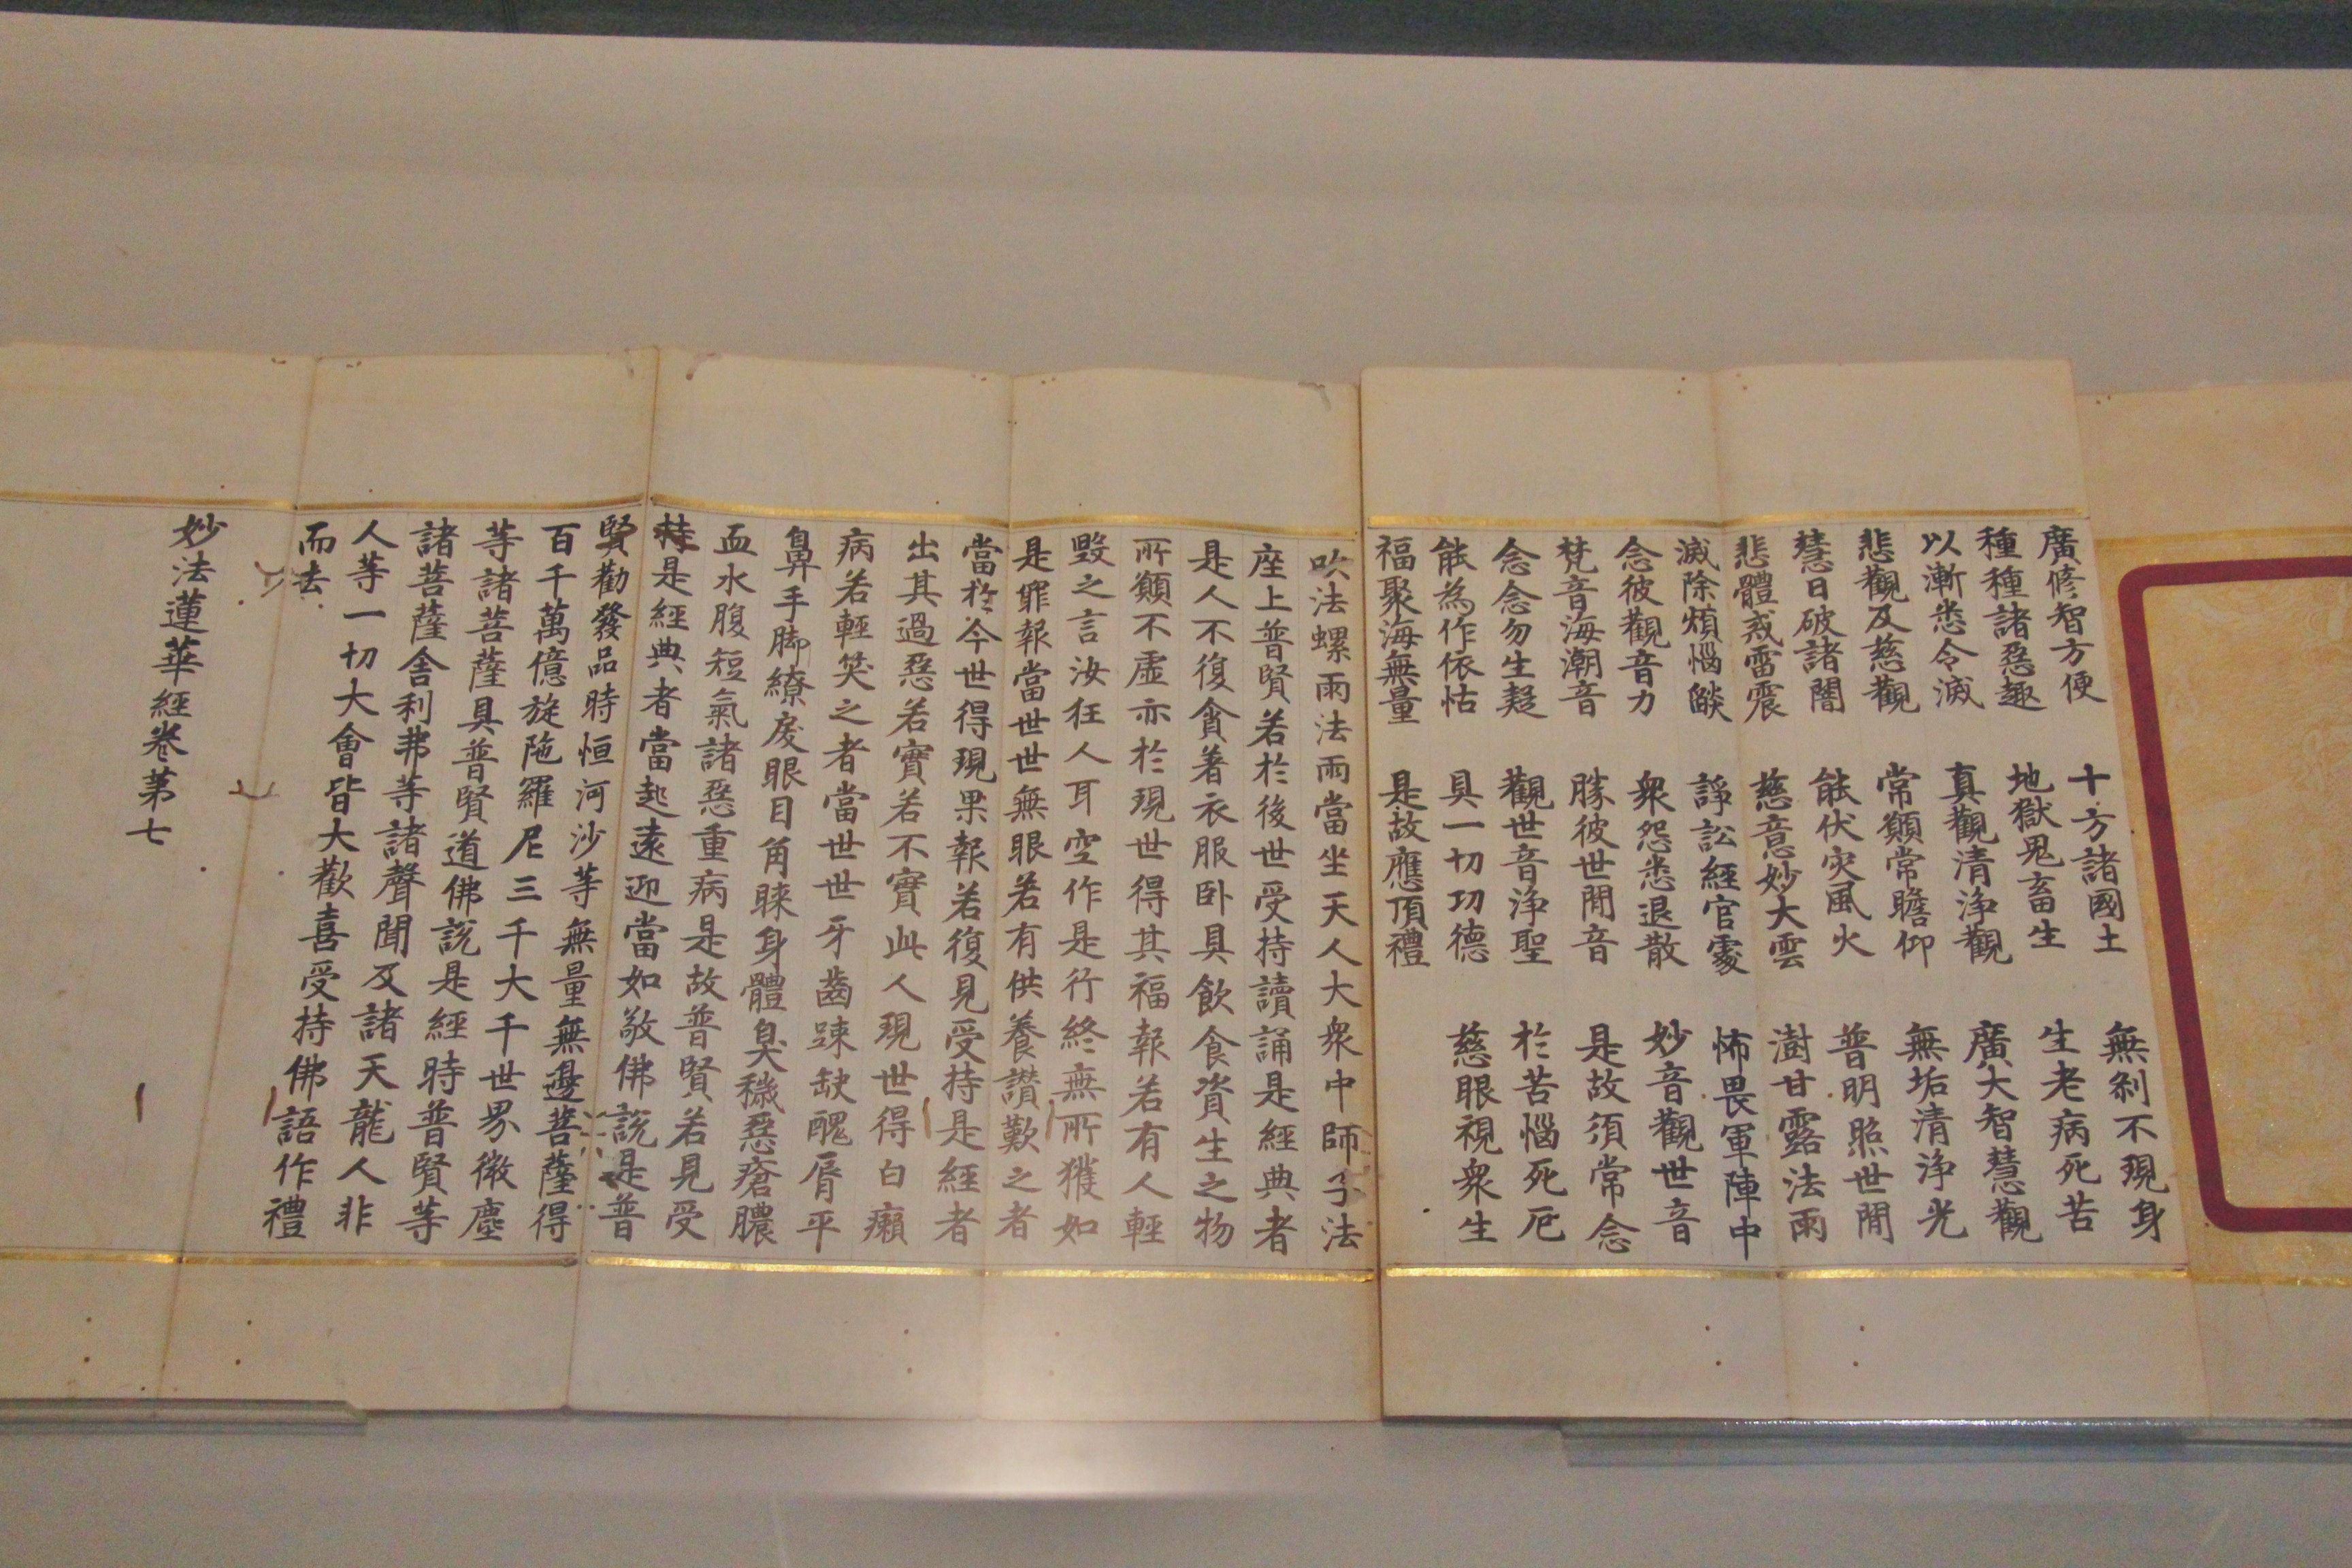 廣修智方便 十方諸國土 無剎不現身
種種諸惡趣 地獄鬼畜生 生老病死苦
以漸悉令滅 真觀清淨觀 廣大智慧觀
悲觀及慈觀 常願常瞻仰 無垢清淨光
慧日破諸闇 能伏灾風火 普明照世間
悲體戒雷震 慈意妙大雲 澍甘露法雨
滅除煩惱燄 諍訟經官處 怖畏軍陣中
念彼觀音力 衆怨悉退散 妙音觀世音
梵音海潮音 勝彼世間音 是故須常念
念念勿生疑 觀世音淨聖 於苦惱死厄
能為作依怙 具一切功德 慈眼視衆生
福聚海無量 是故應頂禮
吹法螺雨法雨當坐天人大衆中師子法
座上普賢若於後世受持讀誦是經典者
是人不復貪著衣服卧具飲食資生之物
所願不虛亦於現世得其福報若有人輕
毀之言汝狂人耳空作是行終無所獲如
是罪報當世世無眼若有供養讚歎之者
當於今世得現果報若復見受持是經者
出其過惡若實若不實此人現世得白癩
病若輕笑之者當世世牙齒踈缺醜脣平
鼻手脚繚戾眼目角睞身體臭穢惡瘡膿
血水腹短氣諸惡重病是故普賢若見受
持是經典者當起遠迎當如敬佛說是普
賢勸發品時恒河沙等無量無邊菩薩得
百千萬億旋陁羅尼三千大千世界微塵
等諸菩薩具普賢道佛說是經時普賢等
諸菩薩舍利弗等諸聲聞及諸天龍人非
人等一切大會皆大歡喜受持佛語作禮
而去
妙法蓮華經卷第七